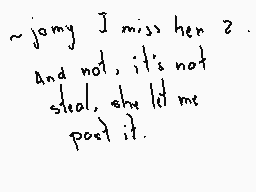 ~ jomy I miss her 2.
And not, it's not
steal, she let me
post it.